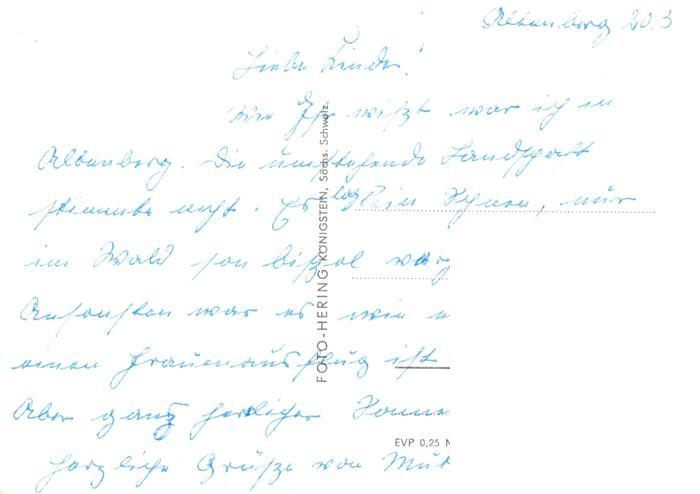 Altenberg 20.3
Liebe Kinder!
Wie Ihr wißt war ich in
Altenberg. Die umstehende Landschaft
stimmte nicht. Es lag kein Schnee, nur
im Wald son bißel
Ansonsten war es wie
einen Frauenausflug ist
Aber ganz herrlicher
Herzliche Grüße von
FOTO-HERING KÖNIGSTEIN, Sächs. Schweiz.
EVP 0,25